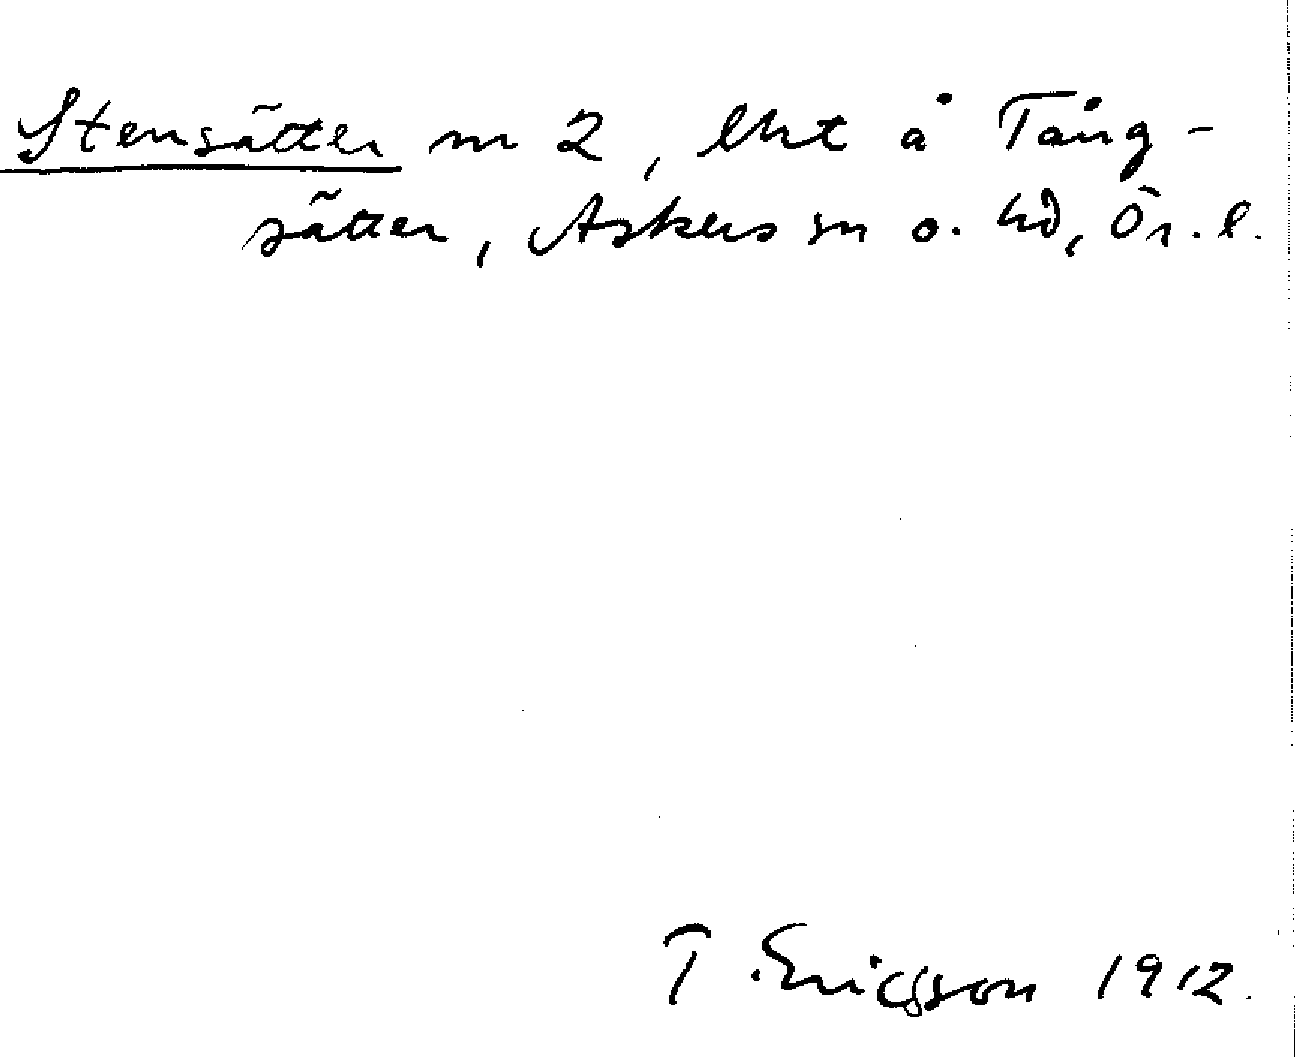 Stensätter m 2, lht å Tång-
sätter, Askers sn o. hd, Ör. l.
T. Ericsson 1912.